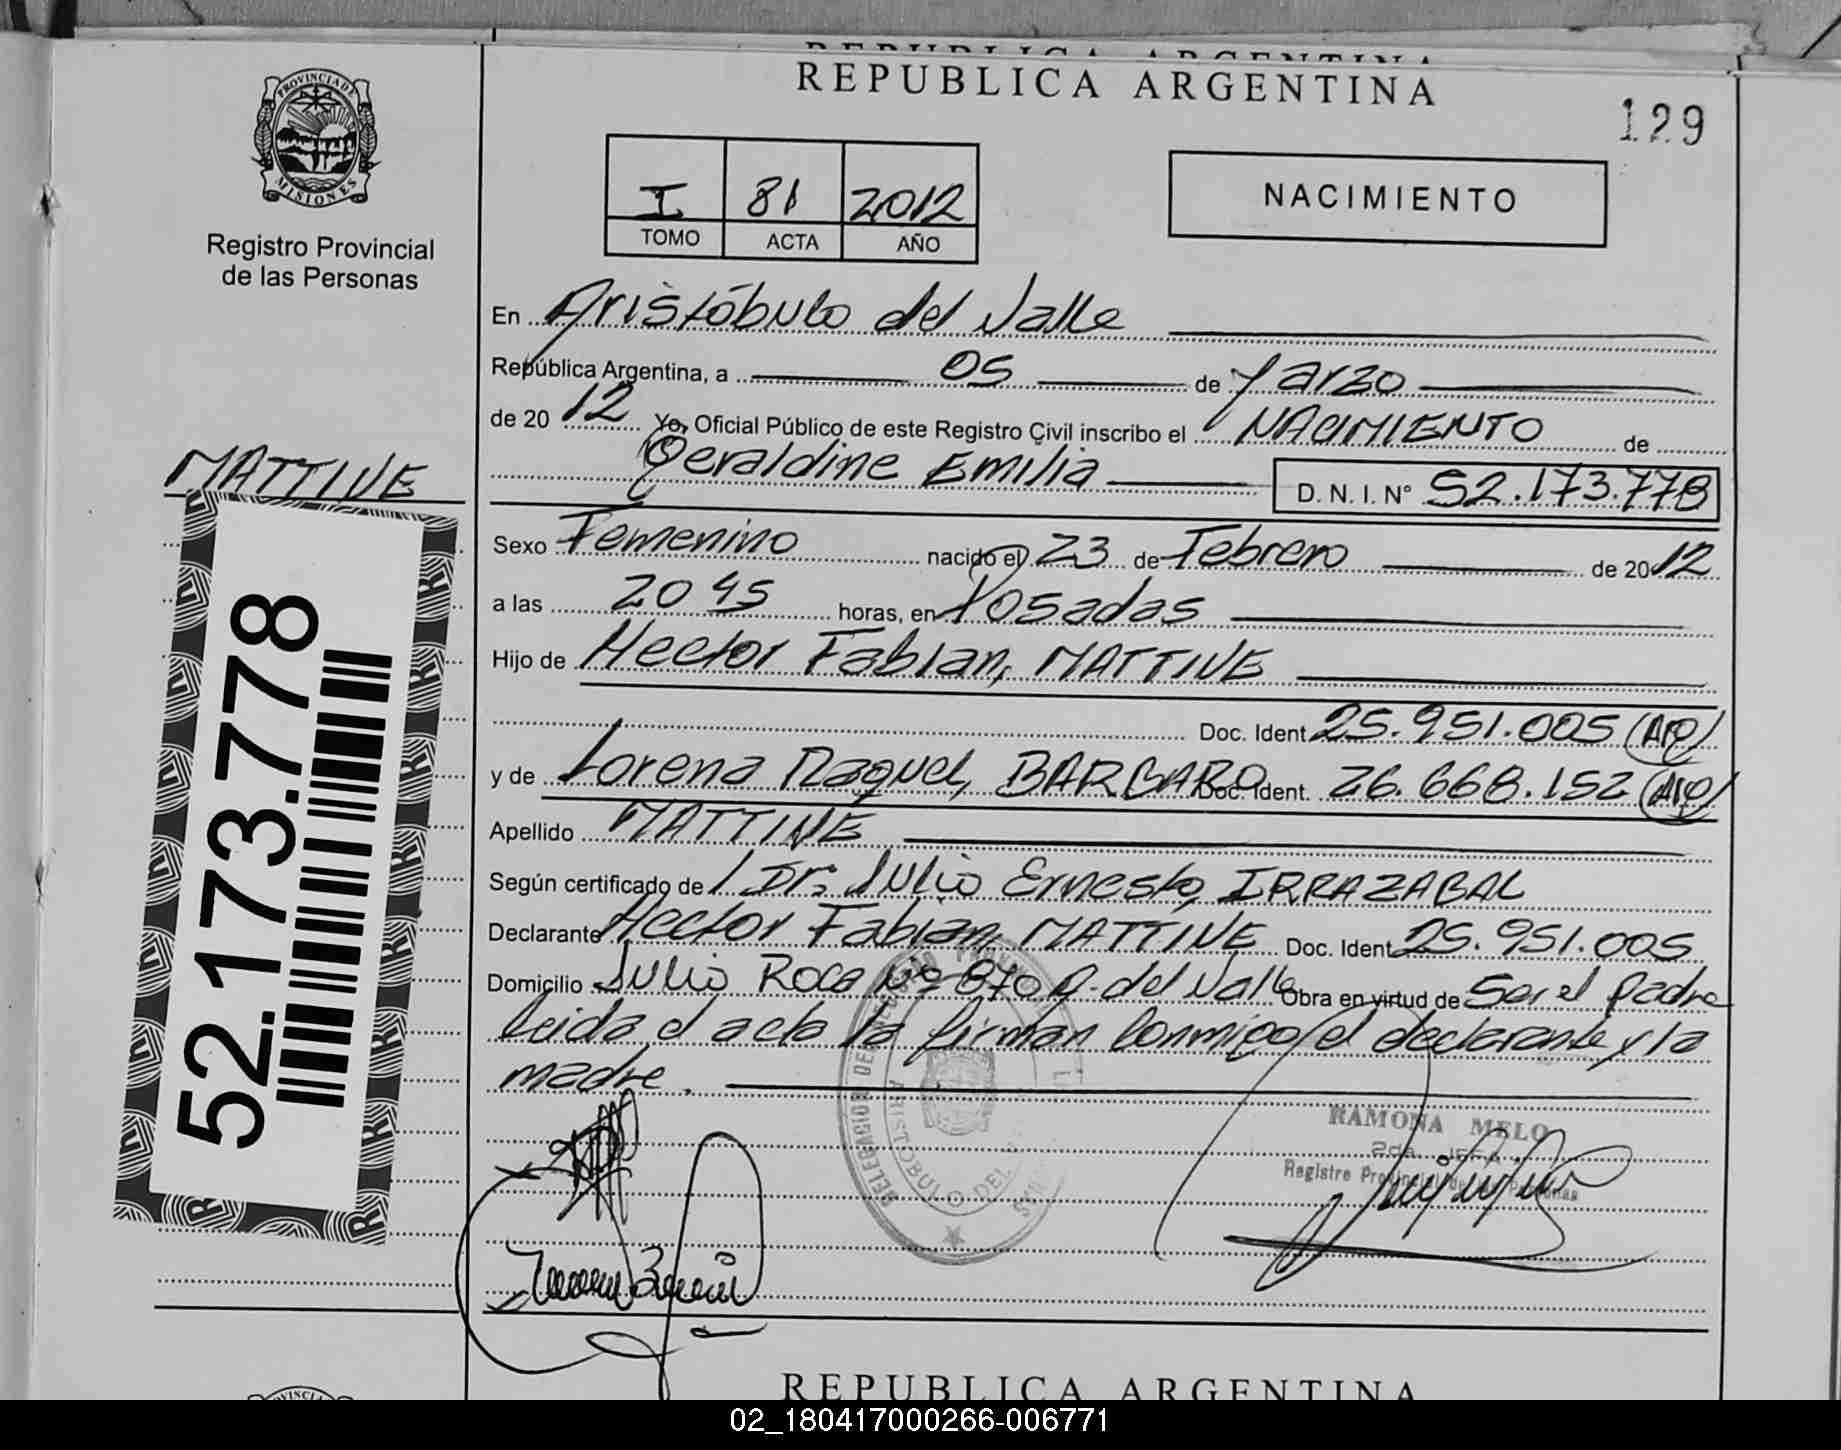 REPUBLICA ARGENTINA
129
PROVINCIA DE
MISIONES
Registro Provincial
de las Personas
I 81 2012
TOMO ACTA AÑO
NACIMIENTO
En Aristóbulo del Valle
República Argentina, a 05 de Marzo
de 2012 Yo, Oficial Público de este Registro Civil inscribo el NACIMIENTO de
Geraldine Emilia D. N. I. N° 52.173.778
MATTIVE
52.173.778
Sexo Femenino nacido el 23 de Febrero de 2012
a las 20 45 horas, en Posadas
Hijo de Hector Fabian, MATTIVE
Doc. Ident. 25.951.005 (Arg)
y de Lorena Raquel, BARBARO Doc. Ident. 26.668.152 (Arg)
Apellido MATTIVE
Según certificado de Dr. Julio Ernesto, IRRAZABAL
Declarante Hector Fabian, MATTIVE Doc. Ident. 25.951.005
Domicilio Julio Roca Nº 870 A. del Valle Obra en virtud de Ser el padre
Leida el acta la firman conmigo el declarante y la
madre.
RAMONA MELO
2da. JEFA
Registro Provincial de las Personas
REPUBLICA ARGENTINA
02_180417000266-006771